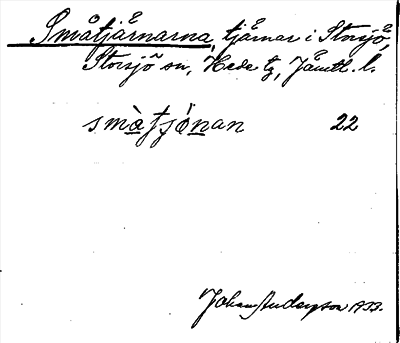 Småtjärnarna, tjärnar i Storsjö,
Storsjö sn, Hede tg, Jämtl. l.
småtjö̀nan 22
Johan Anderson 1933.